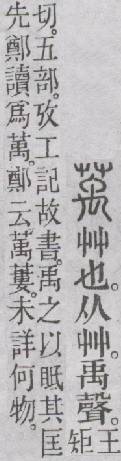 萭艸也。从艸禹聲。王矩
切。五部。攷工記故書。禹之以眡其匡
先鄭讀爲萬。鄭云萬蔞。未詳何物。